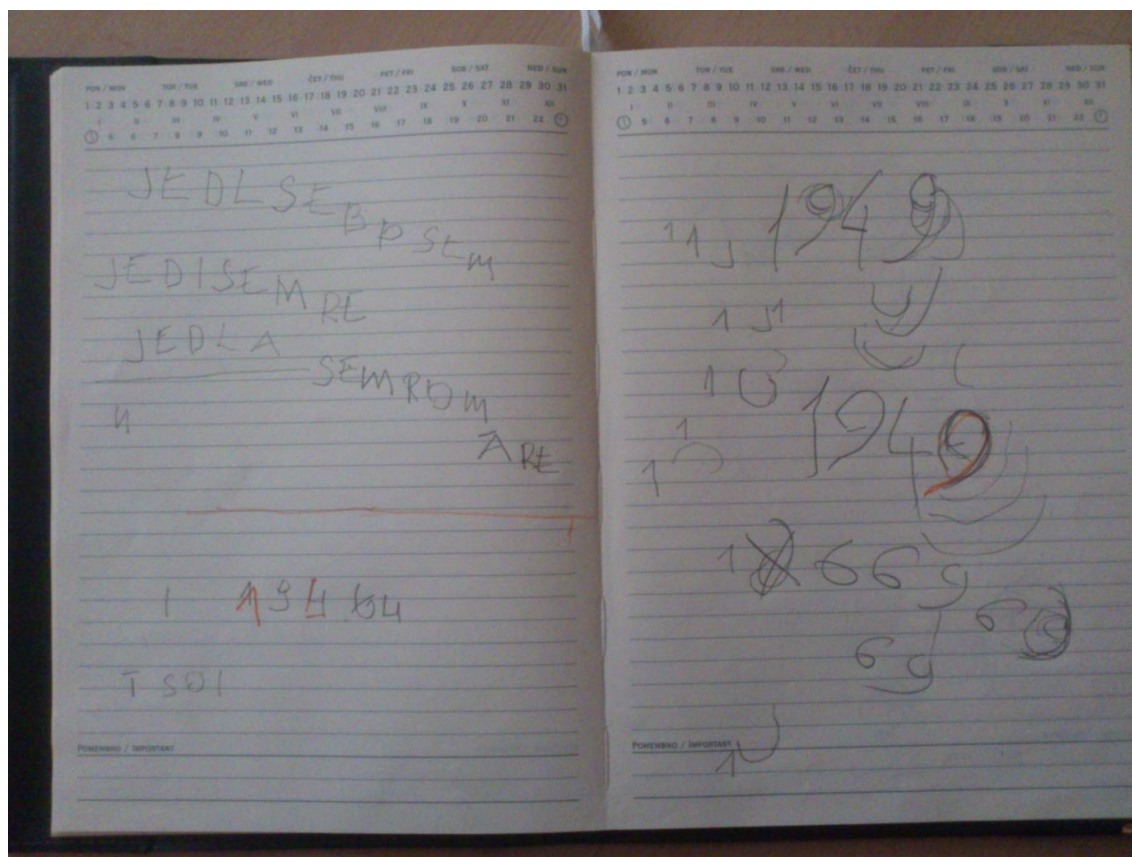 PON / MON TOR / TUE SRE / WED ČET / THU PET / FRI SOB / SAT NED / SUN
1 2 3 4 5 6 7 8 9 10 11 12 13 14 15 16 17 18 19 20 21 22 23 24 25 26 27 28 29 30 31
I II III IV V VI VII VIII IX X XI XII
5 6 7 8 9 10 11 12 13 14 15 16 17 18 19 20 21 22
JEDLSE BPSEM
JEDISEMRE
JEDLA SEMROM
ARE
1 194.64
TSOI
POMEMBNO / IMPORTANT
PON / MON TOR / TUE SRE / WED ČET / THU PET / FRI SOB / SAT NED / SUN
1 2 3 4 5 6 7 8 9 10 11 12 13 14 15 16 17 18 19 20 21 22 23 24 25 26 27 28 29 30 31
I II III IV V VI VII VIII IX X XI XII
5 6 7 8 9 10 11 12 13 14 15 16 17 18 19 20 21 22
11 1949
1
1
1949
1
1 669
69 6
POMEMBNO / IMPORTANT
1